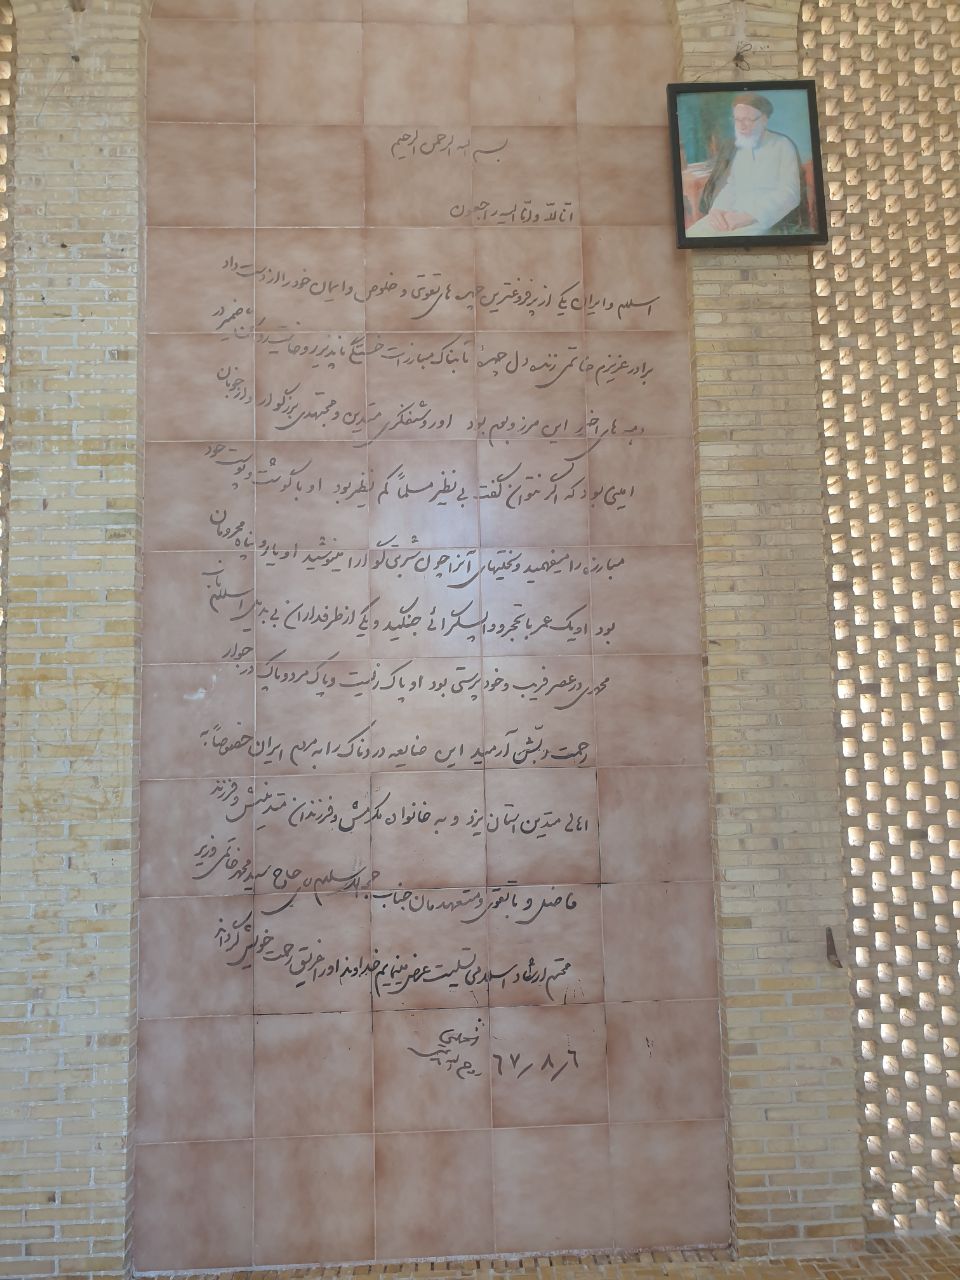 بسم الله الرحمن الرحیم
انا لله و انا الیه راجعون
اسلام و ایران یکی از پرفروغترین چهره های تقوی و خلوص و ایمان خود را از دست داد
برادر عزیزم خاتمی زنده دل چهرهٔ تابناک مبارزات خستگی ناپذیر روحانیت روشن ضمیر در
دهه های اخیر این مرز و بوم بود او روشنفکری متدین و مجتهدی بزرگوار و از خوبان
امینی بود که اگر نتوان گفت بی نظیر مسلماً کم نظیر بود او با گوشت و پوست خود
مبارزه را میفهمید و سختیهای آنرا چون شربتی گوارا مینوشید او یار و پناه محرومان
بود او یک عمر با تحجر و واپسگرائی جنگید و یکی از طرفداران بی بدیل اسلام ناب
محمدی در عصر فریب و خودپرستی بود او پاک زیست و پاک مرد و پاک در جوار
رحمت ربش آرمید این ضایعه دردناک را به مردم ایران خصوصاً به
اهالی متدین استان یزد و به خانواده مکرمش و فرزندان متدینش و فرزند
فاضل و با تقوی و متعهدمان جناب حجة الاسلام آقای حاج سید محمد خاتمی وزیر
محترم ارشاد اسلامی تسلیت عرض مینمایم خداوند او را غریق رحمت خویش گرداند
٦ /٨ /٦٧
روح الله الموسوی الخمینی